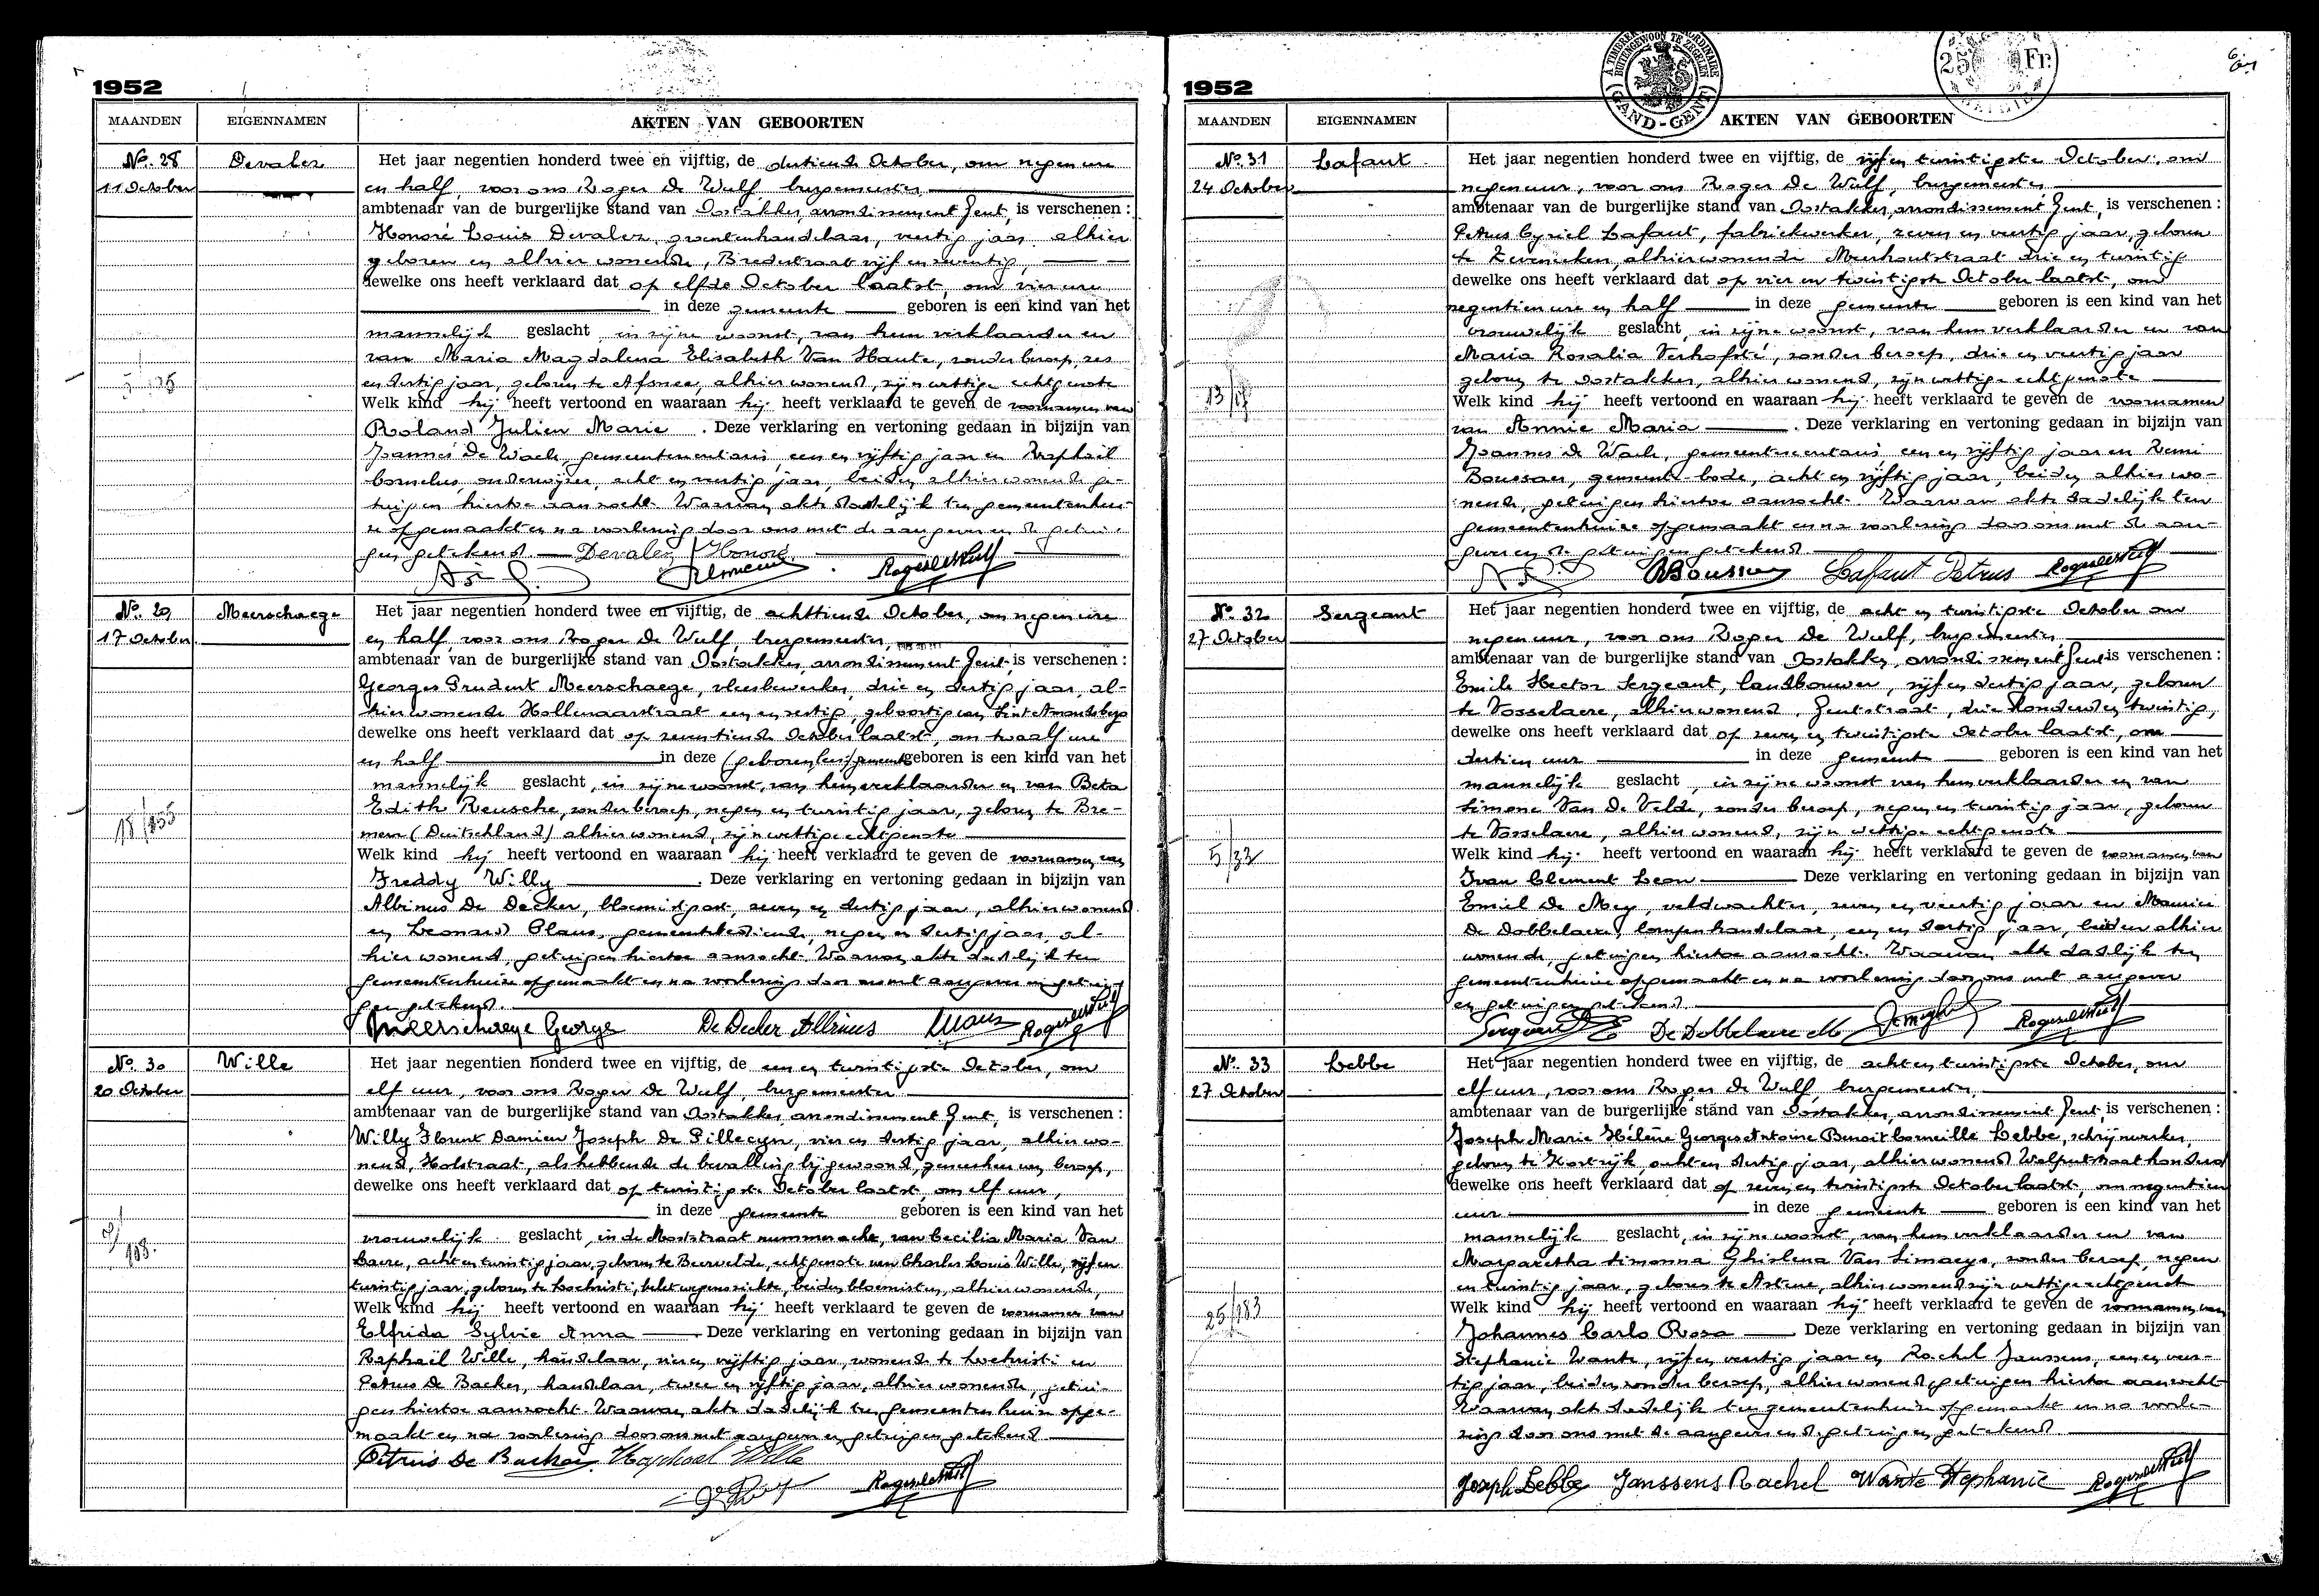 1952
MAANDEN EIGENNAMEN AKTEN VAN GEBOORTEN
No. 28 Devaler Het jaar negentien honderd twee en vijftig, de dertiende October, om negen ure
11 October en half, voor ons Roger De Wulf, burgemeester,
ambtenaar van de burgerlijke stand van Oostakker, arrondissement Gent, is verschenen :
Honoré Louis Devaler, groentenhandelaar, veertig jaar, alhier
geboren en alhier wonende, Bredestraat vijf en
dewelke ons heeft verklaard dat op elfde October laatst, om vier ure
in deze gemeente geboren is een kind van het
mannelijk geslacht, in zijne woonst, van hem verklaarder en
van Maria Magdalena Elisabeth Van Haute, zonder beroep, zes
en dertig jaar, geboren te Afsnee, alhier wonend, zijn wettige echtgenote
Welk kind hij heeft vertoond en waaraan hij heeft verklaard te geven de voornamen van
Roland Julien Marie . Deze verklaring en vertoning gedaan in bijzijn van
Joannes De Waele, gemeentesecretaris, een en vijftig jaar en Raphaël
Cornelus, onderwijzer, acht en veertig jaar, beiden alhier wonende ge-
tuigen hiertoe aanzocht. Waarvan akte dadelijk ten gemeentenhui-
ze opgemaakt en na voorlezing door ons met de aangever en de getui-
gen getekend Devaler Honoré
No. 29 Meerschaege Het jaar negentien honderd twee en vijftig, de achttiende October, om negen ure
17 October en half, voor ons Roger De Wulf, burgemeester,
ambtenaar van de burgerlijke stand van Oostakker, arrondissement Gent, is verschenen :
Georges Prudent Meerschaege, vleesbewerker, drie en dertig jaar, al-
hier wonende Hollenaarstraat een en zestig, geboortig van Sint Amandsberg
dewelke ons heeft verklaard dat op zeventiende October laatst, om twaalf ure
en half in deze (geboren is) gemeente geboren is een kind van het
mannelijk geslacht, in zijne woonst, van hem verklaarder en van Beta
Edith Reusche, zonder beroep, negen en twintig jaar, geboren te Bre-
men (Duitschland) alhier wonend, zijn wettige echtgenote
Welk kind hij heeft vertoond en waaraan hij heeft verklaard te geven de voornamen van
Freddy Willy . Deze verklaring en vertoning gedaan in bijzijn van
Albinus De Decker, bloemist, zeven en dertig jaar, alhier wonend
en Leonard Claus, gemeentebediende, negen en dertig jaar, al-
hier wonend, getuigen hiertoe aanzocht. Waarvan akte dadelijk ten
gemeentenhuize opgemaakt en na voorlezing door ons met aangever en getui-
gen getekend.
Meerschaege George De Decker Albinus LClaus Roger De Wulf
No. 30 Wille Het jaar negentien honderd twee en vijftig, de een en twintigste October, om
20 October elf uur, voor ons Roger De Wulf, burgemeester
ambtenaar van de burgerlijke stand van Oostakker, arrondissement Gent, is verschenen :
Willy Florent Damien Joseph De Pillecyn, vier en dertig jaar, alhier wo-
nend, Holstraat, als hebbende de bevalling bijgewoond, geneesheer van beroep,
dewelke ons heeft verklaard dat op twintigste October laatst, om elf uur,
in deze gemeente geboren is een kind van het
vrouwelijk geslacht, in de Moststraat nummer acht, van Cecilia Maria Van
Daere, acht en twintig jaar, geboren te Beervelde, echtgenote van Charles Louis Wille, vijf en
twintig jaar, geboren te Lochristi, belet wegens ziekte, beiden bloemisten, alhier wonende,
Welk kind hij heeft vertoond en waaraan hij heeft verklaard te geven de voornamen van
Elfrida Sylvie Anna Deze verklaring en vertoning gedaan in bijzijn van
Raphaël Wille, handelaar, vier en vijftig jaar, wonende te Lochristi en
Petrus De Backer, handelaar, twee en vijftig jaar, alhier wonende, getui-
gen hiertoe aanzocht. Waarvan akte dadelijk ten gemeentenhuize opge-
maakt en na voorlezing door ons met aangever en getuigen getekend
Petrus De Backer Raphael Wille
Roger De Wulf
1952
A THIEREN BUITENGEWOON TE ZEGELEN GAND-GENT
25 Fr.
MAANDEN EIGENNAMEN AKTEN VAN GEBOORTEN
No. 31 Lafaut Het jaar negentien honderd twee en vijftig, de vijf en twintigste October, om
24 October negen uur, voor ons Roger De Wulf, burgemeester
ambtenaar van de burgerlijke stand van Oostakker, arrondissement Gent, is verschenen :
Petrus Cyriel Lafaut, fabriekwerker, zeven en veertig jaar, geboren
te Zeveneken, alhier wonende Meerhoutstraat drie en twintig
dewelke ons heeft verklaard dat op vier en twintigste October laatst, om
negentien ure en half in deze gemeente geboren is een kind van het
vrouwelijk geslacht, in zijne woonst, van hem verklaarder en van
Maria Rosalia Verhofsté, zonder beroep, drie en veertig jaar
geboren te Oostakker, alhier wonend, zijn wettige echtgenote
13/
Welk kind hij heeft vertoond en waaraan hij heeft verklaard te geven de voornamen
van Annie Maria . Deze verklaring en vertoning gedaan in bijzijn van
Joannes De Waele, gemeentesecretaris, een en vijftig jaar en Remi
Boussau, gemeente-bode, acht en vijftig jaar, beiden alhier wo-
nende, getuigen hiertoe aanzocht. Waarvan akte dadelijk ten
gemeentenhuize opgemaakt en na voorlezing door ons met de aan-
gever en de getuigen getekend
RBoussau Lafaut Petrus Roger De Wulf
No. 32 Sergeant Het jaar negentien honderd twee en vijftig, de acht en twintigste October om
27 October negen uur, voor ons Roger De Wulf, burgemeester
ambtenaar van de burgerlijke stand van Oostakker, arrondissement Gent is verschenen :
Emile Hector Sergeant, landbouwer, vijf en dertig jaar, geboren
te Vosselaere, alhier wonend, Gentstraat, drie honderd en twintig,
dewelke ons heeft verklaard dat op zeven en twintigste October laatst, om
dertien uur in deze gemeente geboren is een kind van het
mannelijk geslacht, in zijne woonst van hem verklaarder en van
Simone Van De Velde, zonder beroep, negen en twintig jaar, geboren
te Vosselaere, alhier wonend, zijn wettige echtgenote
5/32
Welk kind hij heeft vertoond en waaraan hij heeft verklaard te geven de voornamen van
Ivan Clement Leon Deze verklaring en vertoning gedaan in bijzijn van
Emiel De Mey, veldwachter, zeven en veertig jaar en Maurice
De Dobbelaere, lompenhandelaar, een en dertig jaar, beiden alhier
wonende, getuigen hiertoe aanzocht. Waarvan akte dadelijk ten
gemeentenhuize opgemaakt en na voorlezing door ons met aangever
en getuigen getekend
Sergeant E De Dobbelaere M Roger De Wulf
No. 33 Lebbe Het jaar negentien honderd twee en vijftig, de acht en twintigste October, om
27 October elf uur, voor ons Roger De Wulf, burgemeester
ambtenaar van de burgerlijke stand van Oostakker, arrondissement Gent, is verschenen :
Joseph Marie Hélène Georges Antoine Benoit Corneille Lebbe, schrijnwerker,
geboren te Kortrijk, acht en dertig jaar, alhier wonend Wolfputstraat honderd
dewelke ons heeft verklaard dat op zeven en twintigste October laatst, om negentien
uur in deze gemeente geboren is een kind van het
mannelijk geslacht, in zijne woonst, van hem verklaarder en van
Margaretha Simonna Ghislena Van Simaeys, zonder beroep, negen
en twintig jaar, geboren te Astene, alhier wonend zijn wettige echtgenote
25/183
Welk kind hij heeft vertoond en waaraan hij heeft verklaard te geven de voornamen van
Johannes Carlo Rosa Deze verklaring en vertoning gedaan in bijzijn van
Stephanie Wante, vijf en veertig jaar en Rachel Janssens, een en veer-
tig jaar, beiden zonder beroep, alhier wonend, getuigen hiertoe aanzocht
Waarvan akt dadelijk ten gemeentenhuize opgemaakt en na voorle-
zing door ons met de aangever en de getuigen getekend
Joseph Lebbe Janssens Rachel Wante Stephanie Roger De Wulf